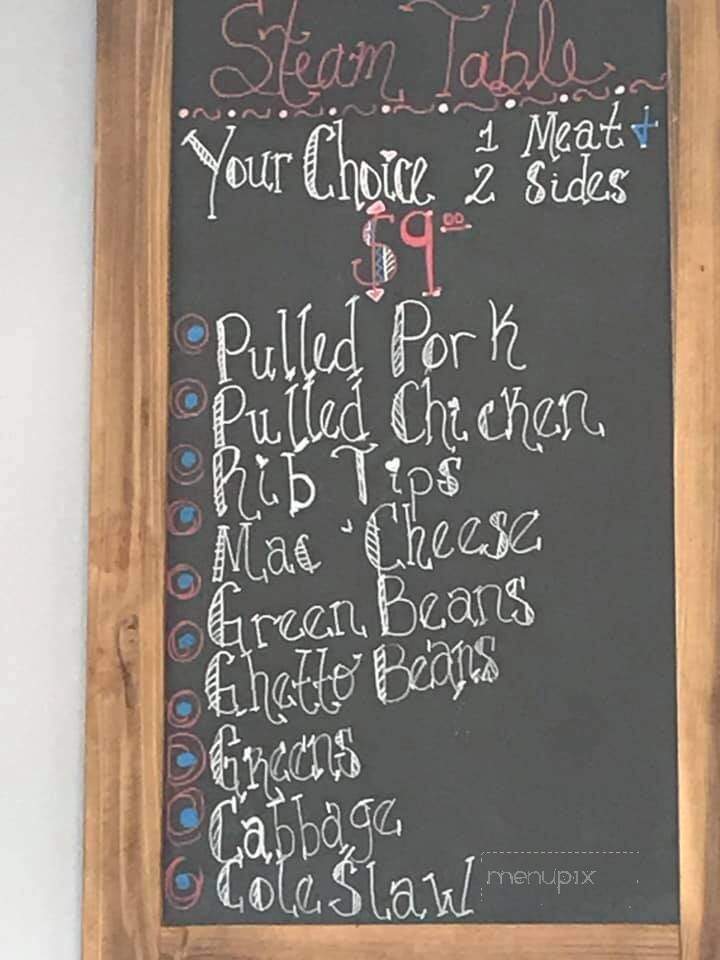 Steam Table
Your Choice 1 Meat +
2 Sides
$9.00
Pulled Pork
Pulled Chicken
Rib Tips
Mac ' Cheese
Green Beans
Ghetto Beans
Greens
Cabbage
Cole Slaw
menupix